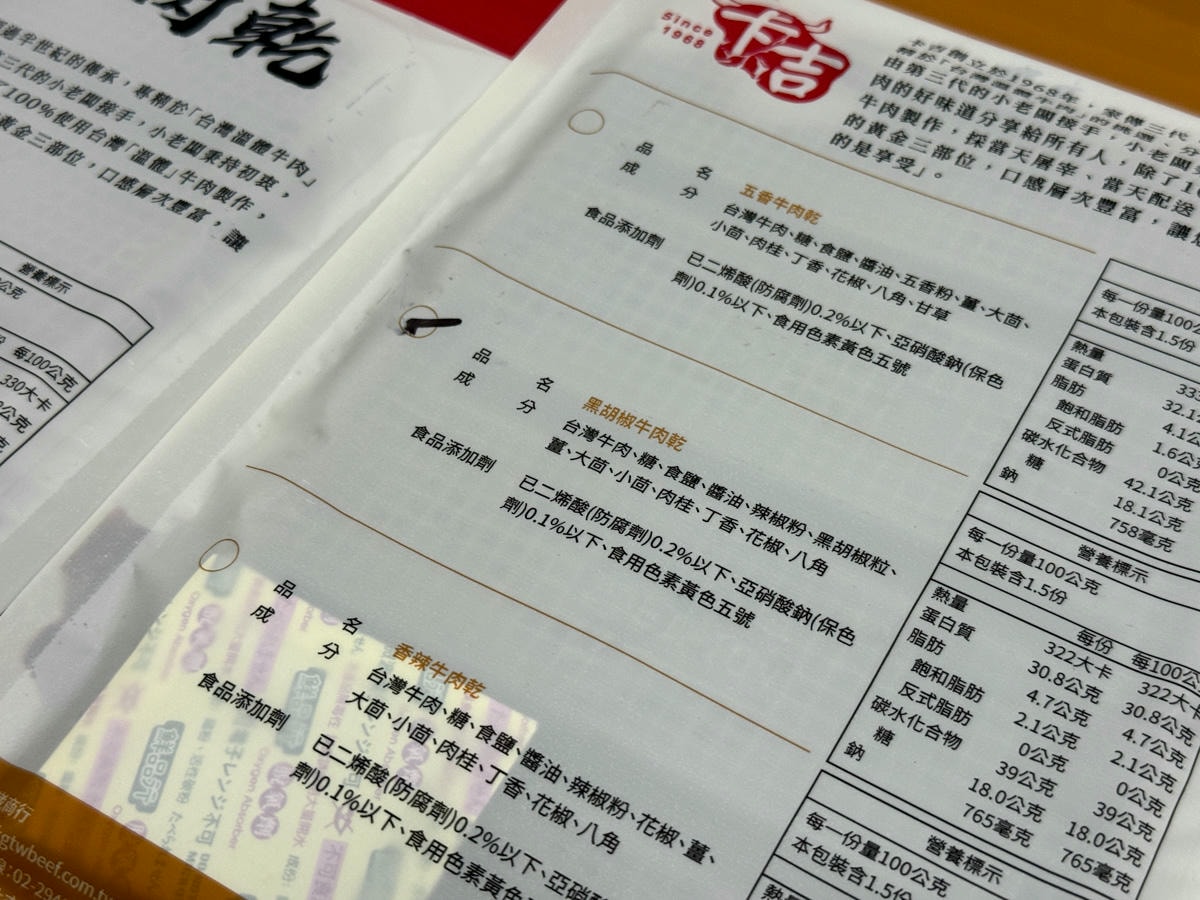 肉乾
過半世紀的傳承，專精於「台灣溫體牛肉」
三代的小老闆接手，小老闆秉持初衷，
100%使用台灣「溫體」牛肉製作，
黃金三部位，口感層次豐富，讓
營養標示
每100公克
330大卡
Since
1968
卡吉
卡吉創立於1968年，家傳三代
由第三代的小老闆接手，小老闆
肉的好味道分享給所有人，除了
牛肉製作，採當天屠宰、當天配送
的黃金三部位，口感層次豐富，讓
的是享受」。
品名 五香牛肉乾
成分 台灣牛肉、糖、食鹽、醬油、五香粉、薑、大茴、
小茴、肉桂、丁香、花椒、八角、甘草
食品添加劑 已二烯酸(防腐劑)0.2%以下、亞硝酸鈉(保色
劑)0.1%以下、食用色素黃色五號
每一份量100
本包裝含1.5份
熱量
蛋白質 32.1
脂肪 4.1公
飽和脂肪 1.6公
反式脂肪 0公克
碳水化合物 42.1公克
糖 18.1公克
鈉 758毫克
品名 黑胡椒牛肉乾
成分 台灣牛肉、糖、食鹽、醬油、辣椒粉、黑胡椒粒、
薑、大茴、小茴、肉桂、丁香、花椒、八角
食品添加劑 已二烯酸(防腐劑)0.2%以下、亞硝酸鈉(保色
劑)0.1%以下、食用色素黃色五號
營養標示
每一份量100公克
本包裝含1.5份
每份 每100公
熱量 322大卡 322大
蛋白質 30.8公克 30.8公克
脂肪 4.7公克 4.7公克
飽和脂肪 2.1公克 2.1公克
反式脂肪 0公克 0公克
碳水化合物 39公克 39公克
糖 18.0公克 18.0公克
鈉 765毫克 765毫克
品名 香辣牛肉乾
成分 台灣牛肉、糖、食鹽、醬油、辣椒粉、花椒、薑、
大茴、小茴、肉桂、丁香、花椒、八角
食品添加劑 已二烯酸(防腐劑)0.2%以下、亞硝酸
劑)0.1%以下、食用色素黃色五
營養標示
每一份量100公克
本包裝含1.5份
熱量
Oxygen Absorber
商行
gtwbeef.com.tw
:02-294